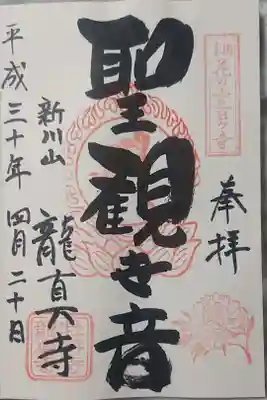 奉拝
聖観世音
新川山
龍真寺
平成三十年 四月二十日